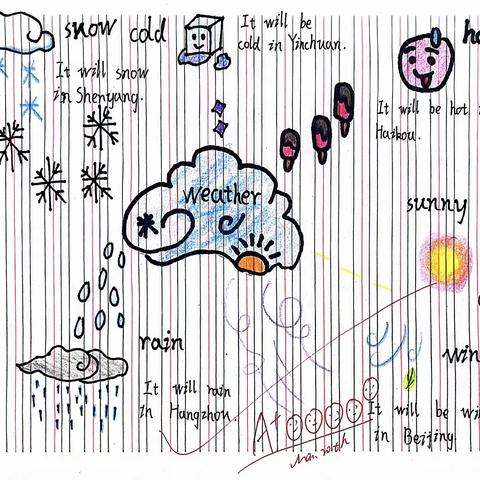 snow
cold
It will be
cold in Yinchuan.
It will snow
in Shenyang.
It will be hot
Haikou.
weather
sunny
rain
It will rain
in Hangzhou.
A+
It will be
in Beijing